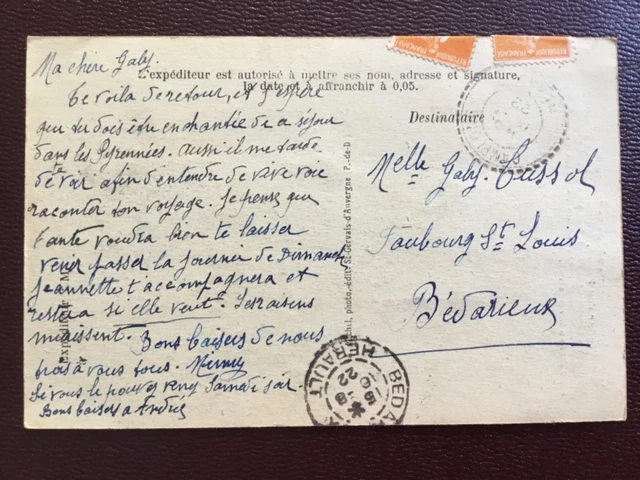 Ma chère Gaby.
L'expéditeur est autorisé à mettre ses nom, adresse et signature,
la date et à affranchir à 0,05.
te voila de retour, et j'espère
que tu dois être enchantée de a séjour
dans les Pyrennées. Aussi il me tarde
de te voir afin d'entendre de vive voie
raconter ton voyage. Je pense que
tante voudra bien te laisser
venir passer la journee de Dimanche
Jeannette t accompagnera et
restera si elle veut. Les raisins
murissent. Bons baisers de nous
trois à vous tous.
Si vous le pouvez venez Samedi soir
Bons baisers a
Destinataire
Melle Gaby Cussol
Faubourg St Louis
Bédarieux
photo.-édit. St-Gervais-d'Auvergne P.-de-D
REPUBLIQUE FRANÇAISE
REPUBLIQUE FRANÇAISE
HERAULT
22